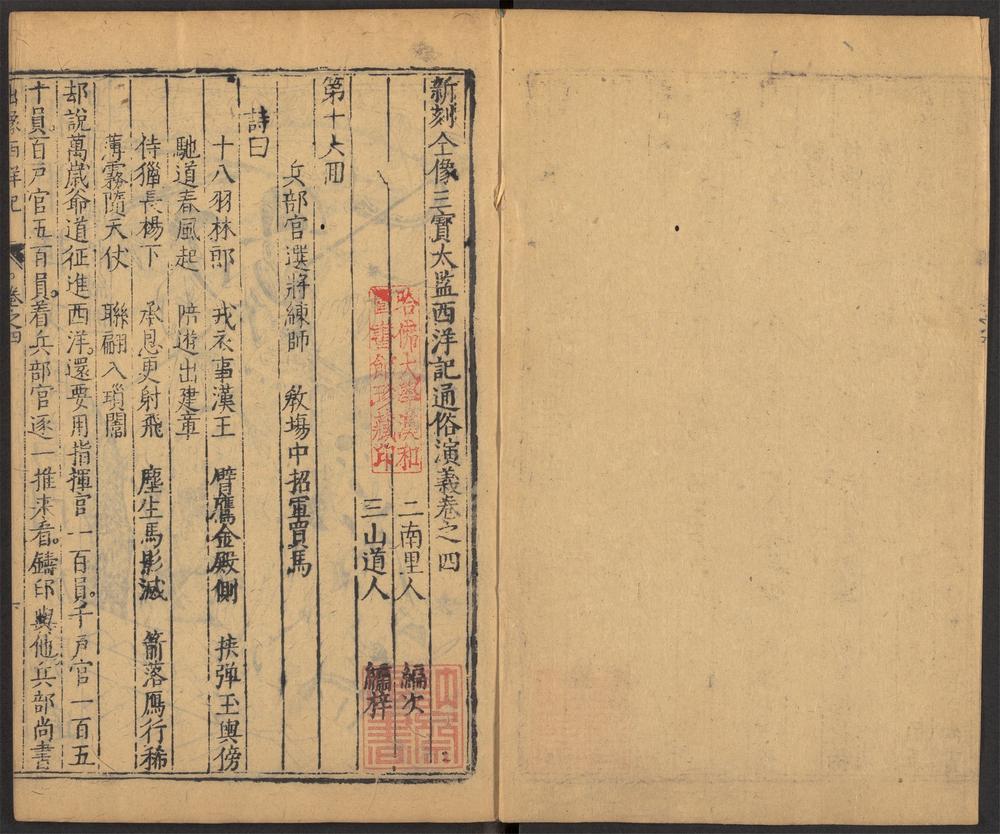 新刻全像三寶太監西洋記通俗演義卷之四
二南里人　編次
三山道人　編梓
哈佛大學漢和
圖書館珍藏印
第十六回
兵部官選將練師　教場中招軍買馬
詩曰
十八羽林郎　戎衣事漢王　臂鷹金殿側　挾彈玉輿傍
馳道春風起　陪遊出建章
侍獵長楊下　承恩更射飛　塵生馬影滅　箭落鴈行稀
薄霧隨天仗　聯翩入瑣闈
却說萬歲爺道征進西洋。還要用指揮官一百員。千戶官一百五
十員。百戶官五百員。着兵部官逐一推来看。鑄印與他。兵部尚書
西洋記　卷之四